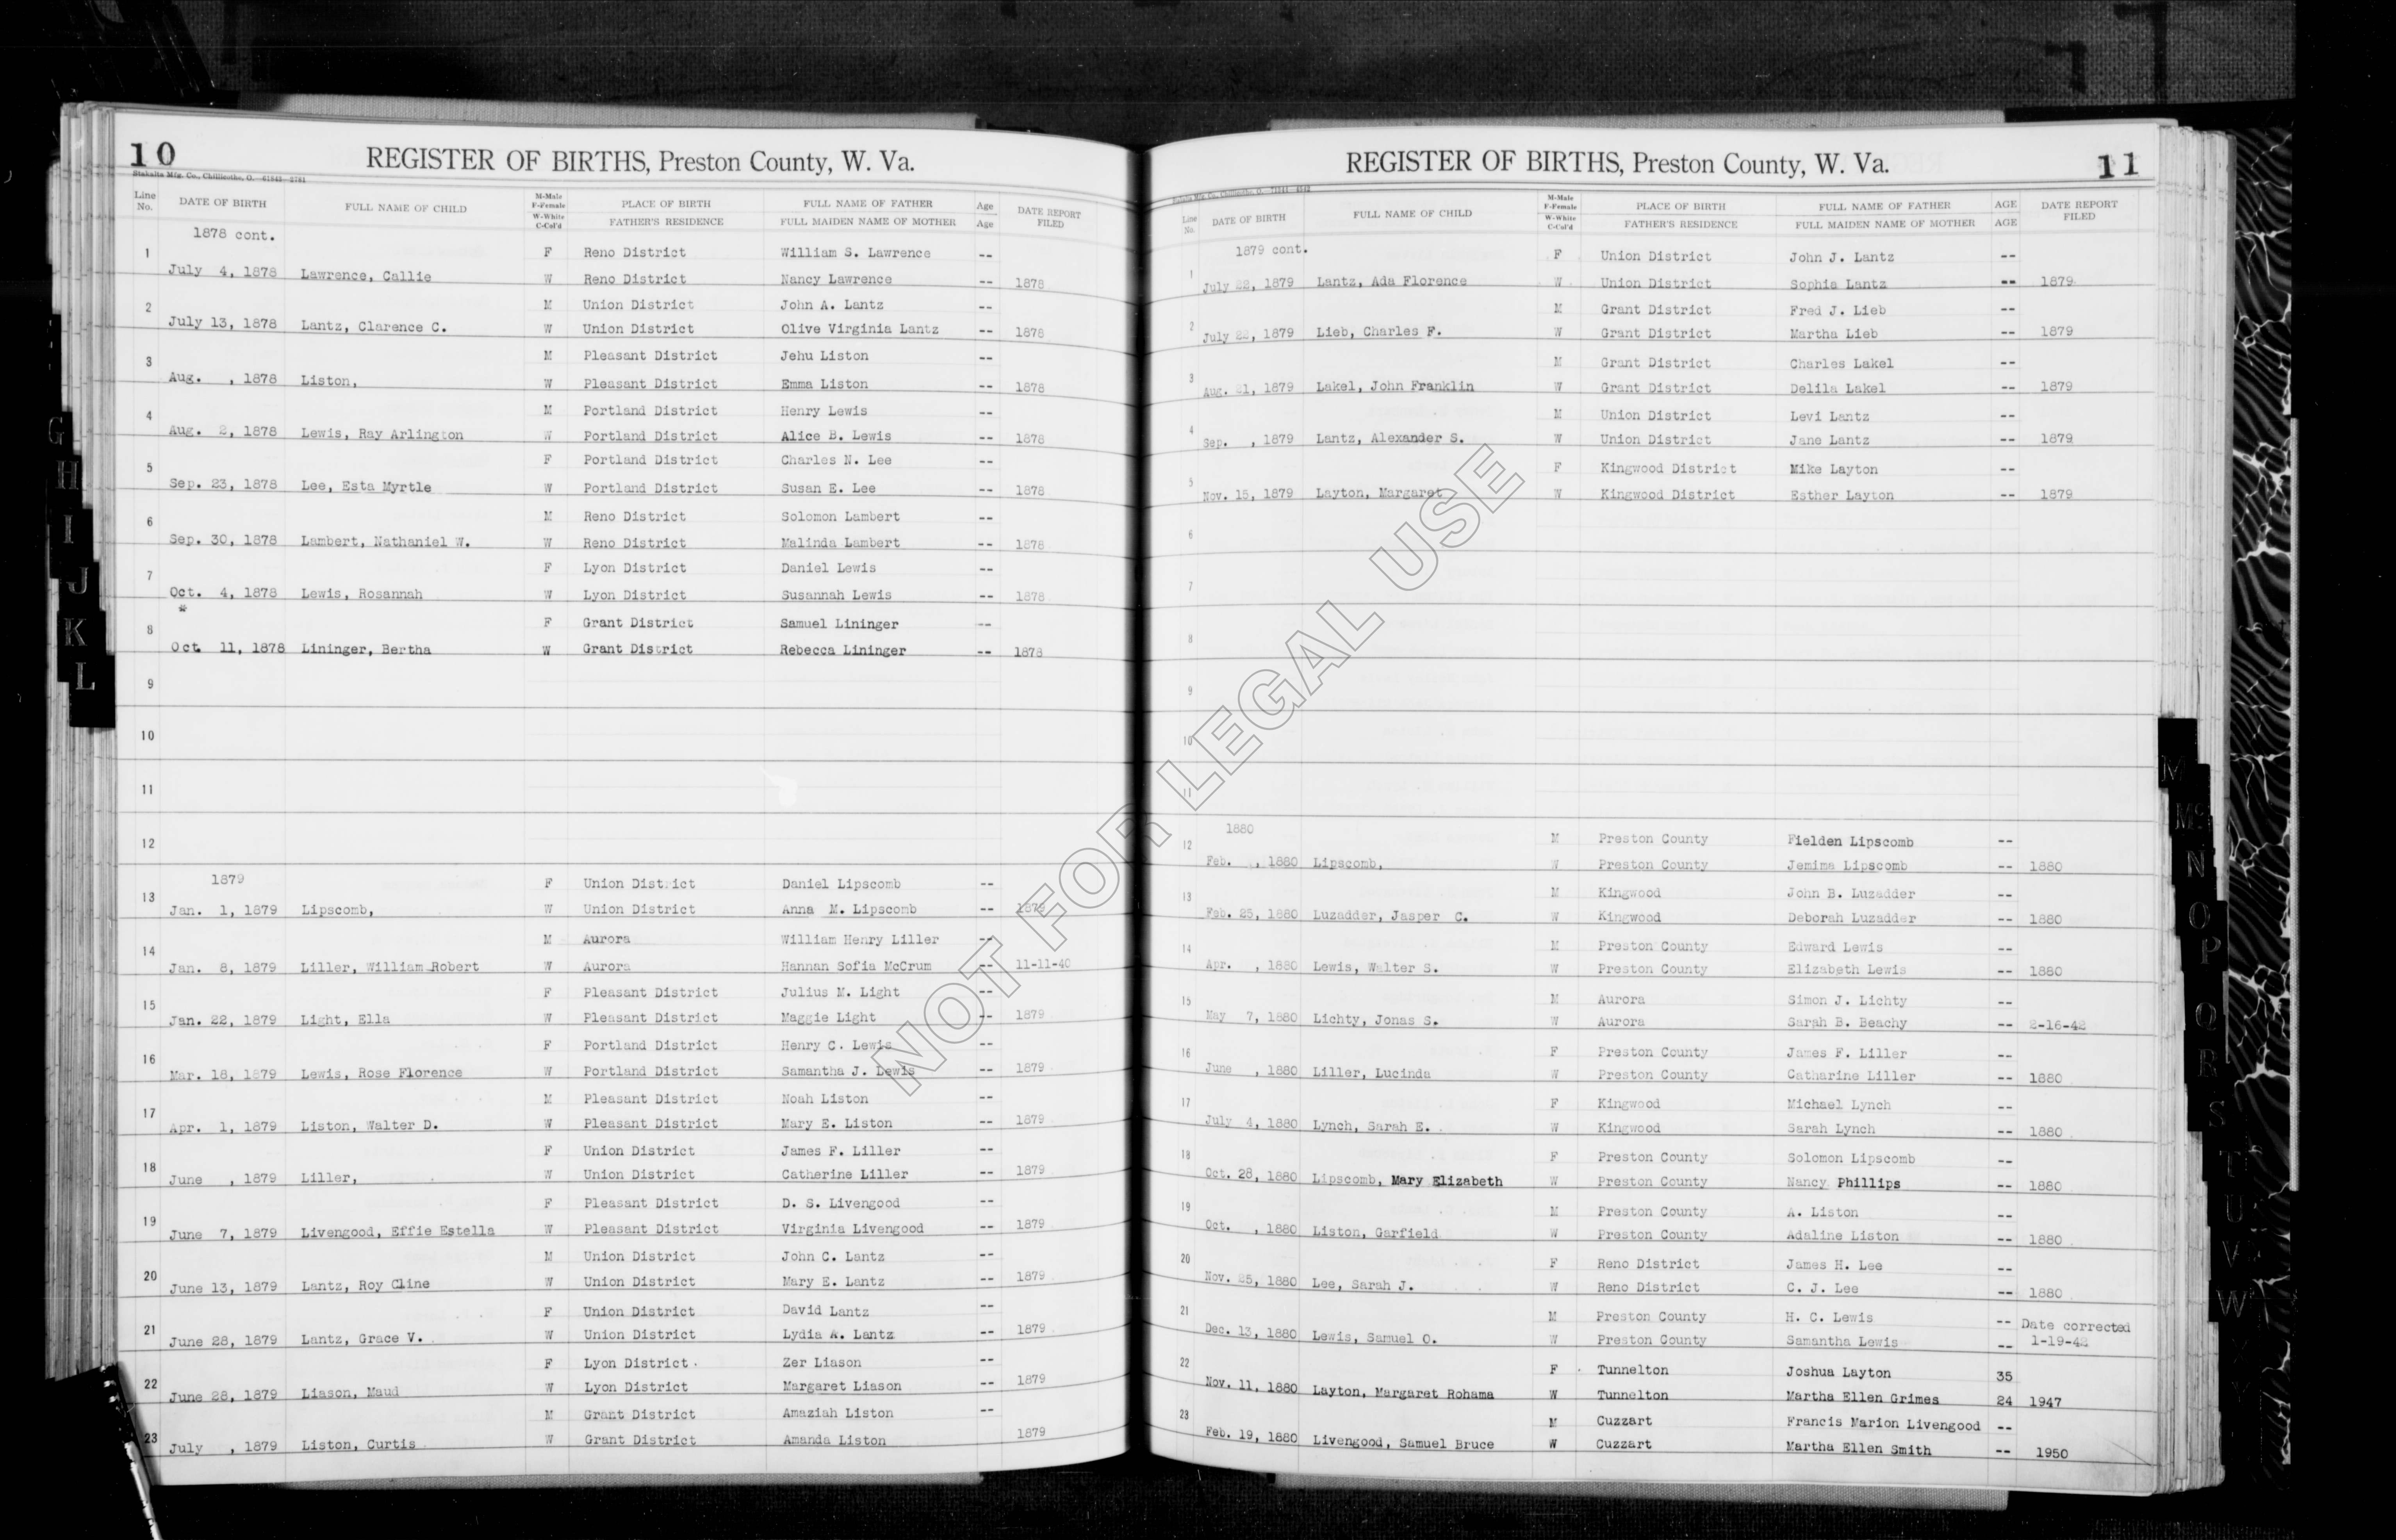 10
REGISTER OF BIRTHS, Preston County, W. Va.
Line No. DATE OF BIRTH FULL NAME OF CHILD M-Male F-Female W-White C-Col'd PLACE OF BIRTH FATHER'S RESIDENCE FULL NAME OF FATHER FULL MAIDEN NAME OF MOTHER Age Age DATE REPORT FILED
1878 cont.
1 F Reno District William S. Lawrence --
July 4, 1878 Lawrence, Callie W Reno District Nancy Lawrence -- 1878
2 M Union District John A. Lantz --
July 13, 1878 Lantz, Clarence C. W Union District Olive Virginia Lantz -- 1878
3 M Pleasant District Jehu Liston --
Aug. , 1878 Liston, W Pleasant District Emma Liston -- 1878
4 M Portland District Henry Lewis --
Aug. 2, 1878 Lewis, Ray Arlington W Portland District Alice B. Lewis -- 1878
5 F Portland District Charles N. Lee --
Sep. 23, 1878 Lee, Esta Myrtle W Portland District Susan E. Lee -- 1878
6 M Reno District Solomon Lambert --
Sep. 30, 1878 Lambert, Nathaniel W. W Reno District Malinda Lambert -- 1878
7 F Lyon District Daniel Lewis --
Oct. 4, 1878 Lewis, Rosannah W Lyon District Susannah Lewis -- 1878
*
8 F Grant District Samuel Lininger --
Oct. 11, 1878 Lininger, Bertha W Grant District Rebecca Lininger -- 1878
9
10
11
12
1879
13 F Union District Daniel Lipscomb --
Jan. 1, 1879 Lipscomb, W Union District Anna M. Lipscomb -- 1879
14 M Aurora William Henry Liller --
Jan. 8, 1879 Liller, William Robert W Aurora Hannan Sofia McCrum -- 11-11-40
15 F Pleasant District Julius M. Light --
Jan. 22, 1879 Light, Ella W Pleasant District Maggie Light -- 1879
16 F Portland District Henry C. Lewis --
Mar. 18, 1879 Lewis, Rose Florence W Portland District Samantha J. Lewis -- 1879
17 M Pleasant District Noah Liston --
Apr. 1, 1879 Liston, Walter D. W Pleasant District Mary E. Liston -- 1879
18 F Union District James F. Liller --
June , 1879 Liller, W Union District Catherine Liller -- 1879
19 F Pleasant District D. S. Livengood --
June 7, 1879 Livengood, Effie Estella W Pleasant District Virginia Livengood -- 1879
20 M Union District John C. Lantz --
June 13, 1879 Lantz, Roy Cline W Union District Mary E. Lantz -- 1879
21 F Union District David Lantz --
June 28, 1879 Lantz, Grace V. W Union District Lydia A. Lantz -- 1879
22 F Lyon District Zer Liason --
June 28, 1879 Liason, Maud W Lyon District Margaret Liason -- 1879
23 M Grant District Amaziah Liston --
July , 1879 Liston, Curtis W Grant District Amanda Liston 1879
G
H
I
J
K
L
11
REGISTER OF BIRTHS, Preston County, W. Va.
Line No. DATE OF BIRTH FULL NAME OF CHILD M-Male F-Female W-White C-Col'd PLACE OF BIRTH FATHER'S RESIDENCE FULL NAME OF FATHER FULL MAIDEN NAME OF MOTHER AGE AGE DATE REPORT FILED
1879 cont.
1 F Union District John J. Lantz --
July 22, 1879 Lantz, Ada Florence W Union District Sophia Lantz -- 1879
2 M Grant District Fred J. Lieb --
July 22, 1879 Lieb, Charles F. W Grant District Martha Lieb -- 1879
3 M Grant District Charles Lakel --
Aug. 21, 1879 Lakel, John Franklin W Grant District Delila Lakel -- 1879
4 M Union District Levi Lantz --
Sep. , 1879 Lantz, Alexander S. W Union District Jane Lantz -- 1879
5 F Kingwood District Mike Layton --
Nov. 15, 1879 Layton, Margaret W Kingwood District Esther Layton -- 1879
6
7
8
9
10
11
1880
12 M Preston County Fielden Lipscomb --
Feb. , 1880 Lipscomb, W Preston County Jemima Lipscomb -- 1880
13 M Kingwood John B. Luzadder --
Feb. 25, 1880 Luzadder, Jasper C. W Kingwood Deborah Luzadder -- 1880
14 M Preston County Edward Lewis --
Apr. , 1880 Lewis, Walter S. W Preston County Elizabeth Lewis -- 1880
15 M Aurora Simon J. Lichty --
May 7, 1880 Lichty, Jonas S. W Aurora Sarah B. Beachy -- 2-16-42
16 F Preston County James F. Liller --
June , 1880 Liller, Lucinda W Preston County Catharine Liller -- 1880
17 F Kingwood Michael Lynch --
July 4, 1880 Lynch, Sarah E. W Kingwood Sarah Lynch -- 1880
18 F Preston County Solomon Lipscomb --
Oct. 28, 1880 Lipscomb, Mary Elizabeth W Preston County Nancy Phillips -- 1880
19 M Preston County A. Liston --
Oct. , 1880 Liston, Garfield W Preston County Adaline Liston -- 1880
20 F Reno District James H. Lee --
Nov. 25, 1880 Lee, Sarah J. W Reno District C. J. Lee -- 1880
21 M Preston County H. C. Lewis -- Date corrected
Dec. 13, 1880 Lewis, Samuel O. W Preston County Samantha Lewis -- 1-19-42
22 F Tunnelton Joshua Layton 35
Nov. 11, 1880 Layton, Margaret Rohama W Tunnelton Martha Ellen Grimes 24 1947
23 M Cuzzart Francis Marion Livengood --
Feb. 19, 1880 Livengood, Samuel Bruce W Cuzzart Martha Ellen Smith -- 1950
M
Mc
N
O
P
Q
R
S
T
U
V
W
NOT FOR LEGAL USE